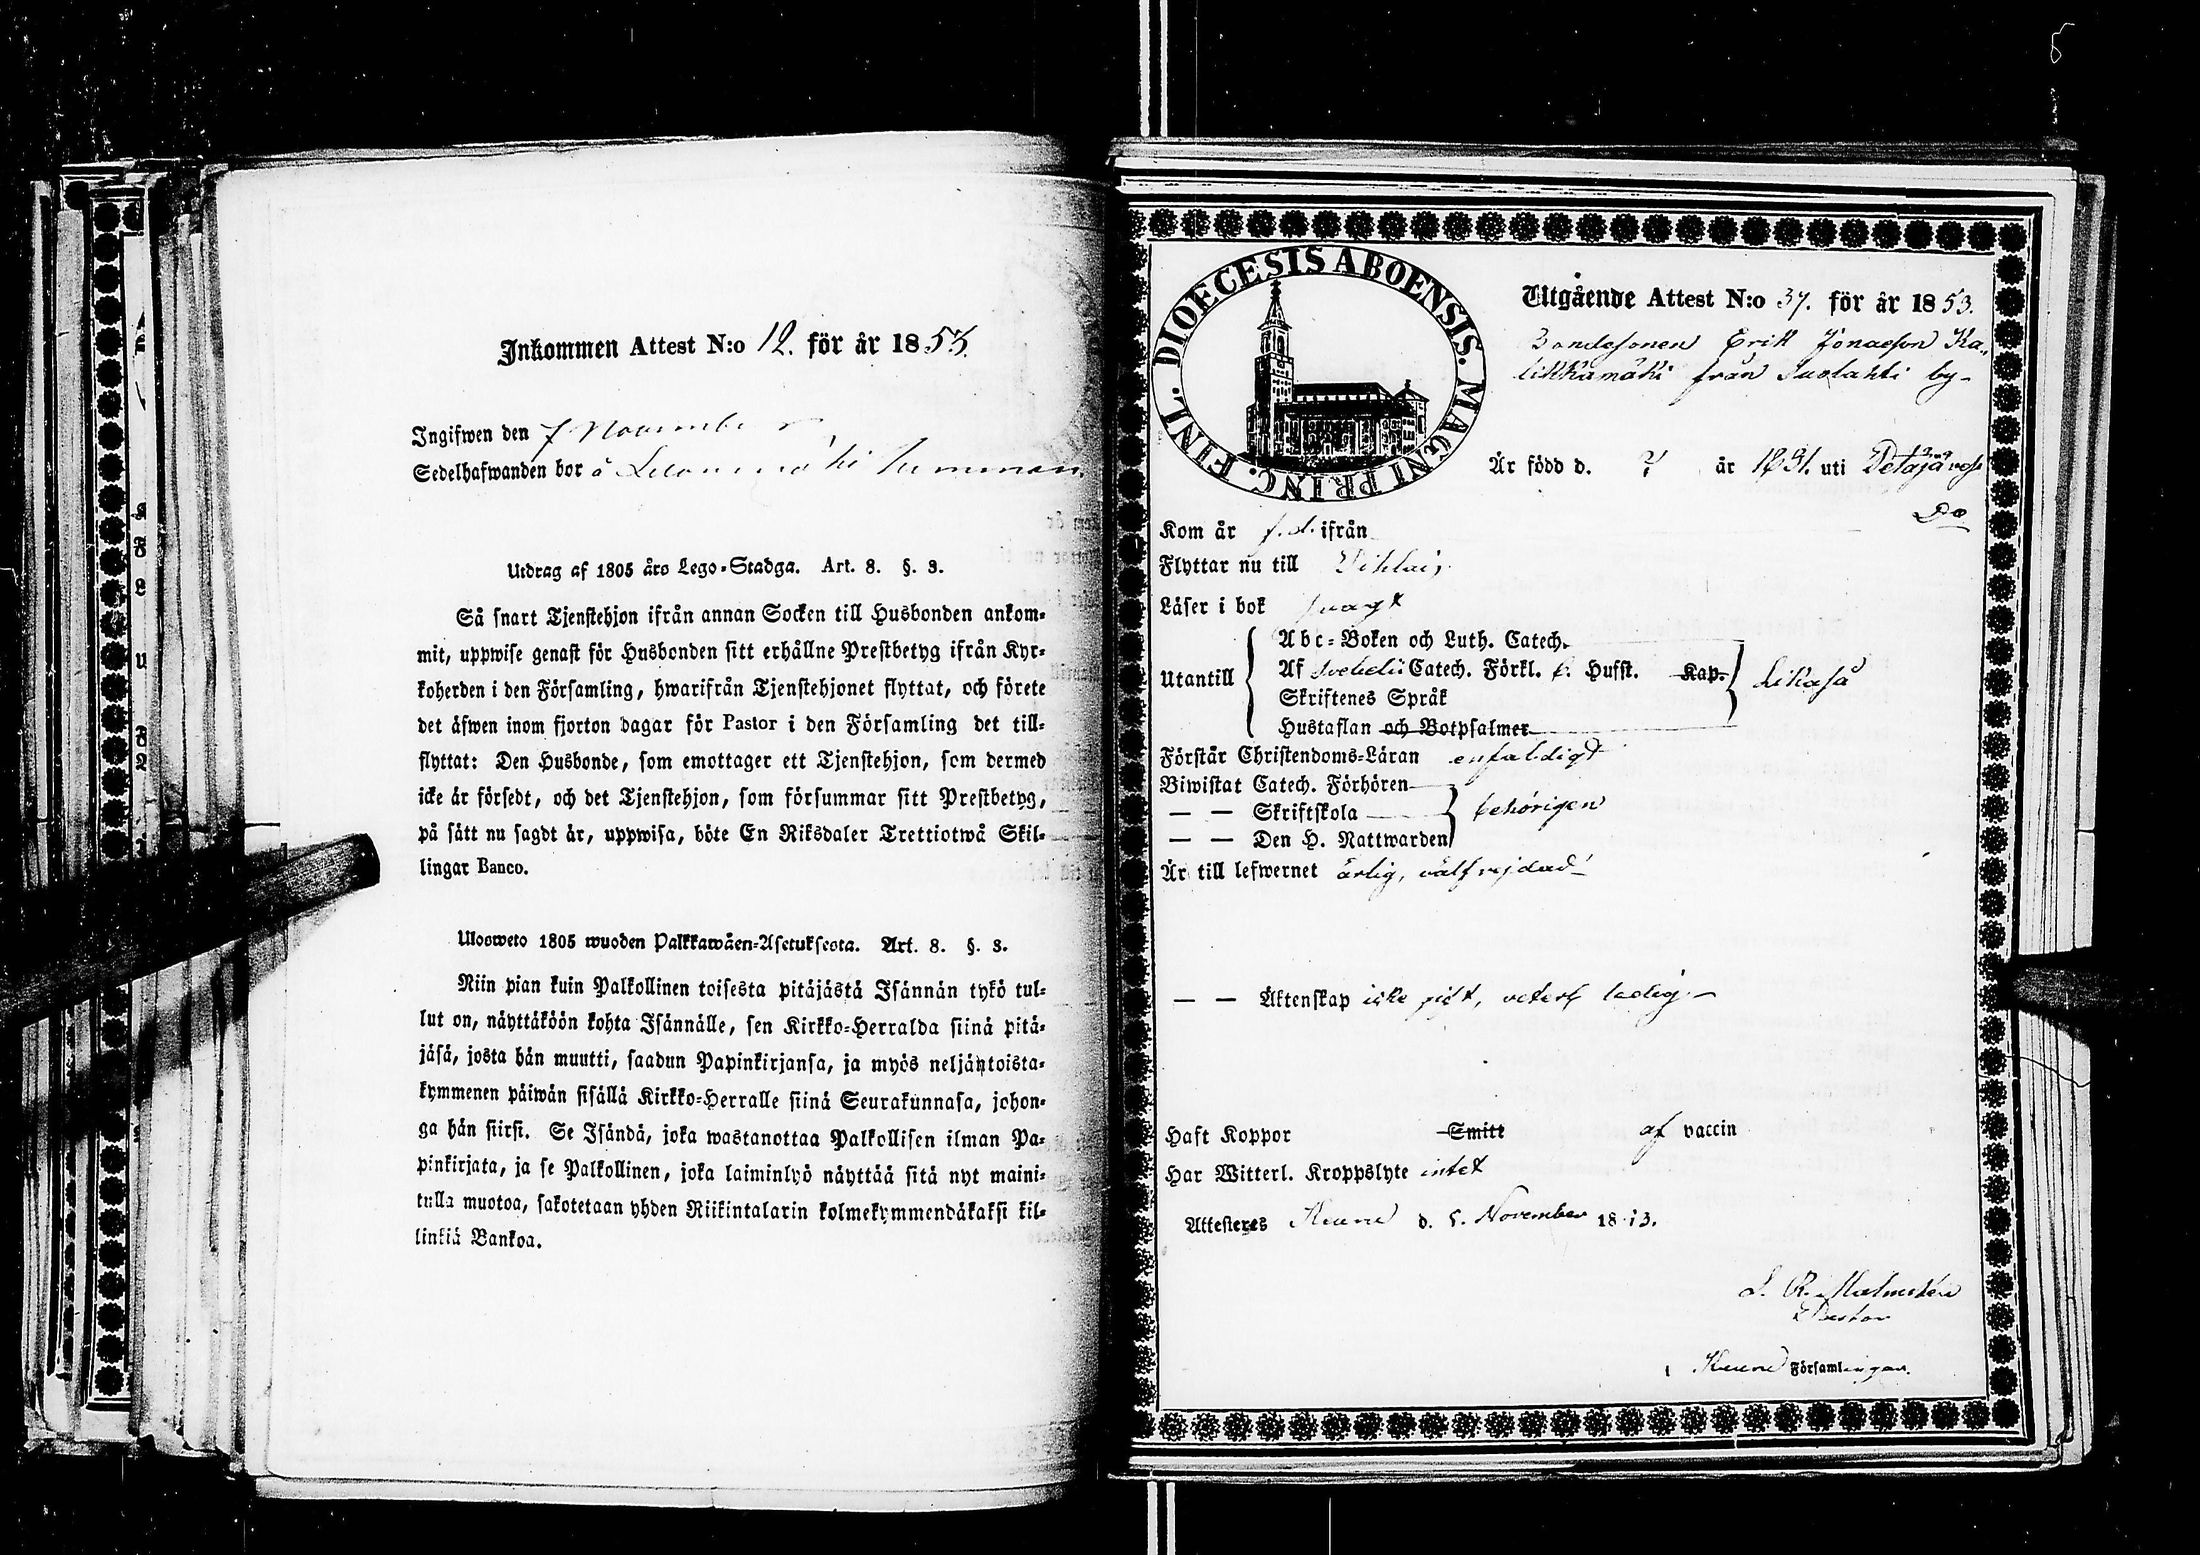 5
Inkommen Attest N:o 12. för år 1853.
Ingifwen den 7 November
Sedelhafwanden bor å
Utdrag af 1805 års Lego-Stadga. Art. 8. §. 3.
Så snart Tjenstehjon ifrån annan Socken till Husbonden ankom-
mit, uppwise genast för Husbonden sitt erhållne Prestbetyg ifrån Kyr-
koherden i den Församling, hwarifrån Tjenstehjonet flyttat, och förete
det äfwen inom fjorton dagar för Pastor i den Församling det till-
flyttat: Den Husbonde, som emottager ett Tjenstehjon, som dermed
icke är försedt, och det Tjenstehjon, som försummar sitt Prestbetyg,
på sätt nu sagdt är, uppwisa, böte En Riksdaler Trettiotwå Skil-
lingar Banco.
Ulosweto 1805 wuoden Palkkawäen-Asetuksesta. Art. 8. §. 3.
Niin pian kuin Palkollinen toisesta pitäjästä Isännän tykö tul-
lut on, näyttäköön kohta Isännälle, sen Kirkko-Herralda siinä pitä-
jäsä, josta hän muutti, saadun Papinkirjansa, ja myös neljäntoista-
kymmenen päiwän sisällä Kirkko-Herralle siinä Seurakunnasa, johon-
ga hän siirsi. Se Isändä, joka wastanottaa Palkollisen ilman Pa-
pinkirjata, ja se Palkollinen, joka laiminlyö näyttää sitä nyt maini-
tulla muotoa, sakotetaan yhden Riikintalarin kolmekymmendäkaksi kil-
linkiä Bankoa.
DIOECESIS ABOENSIS. MAGNI PRINC. FINL.
Utgående Attest N:o 37. för år 1853.
Bondesonen Erik Jonasson Ka-
likkamäki från Suolahti by-
Är född d. ? år 1831. uti
Do
Kom år f. d. ifrån
Flyttar nu till
Läser i bok svagt
Utantill
Abc-Boken och Luth. Catech.
Af Svebelii Catech. Förkl. 6. Hufst. Kap.
Skriftenes Språk
Hustaflan och Botpsalmer
likaså
Förstår Christendoms-Läran enfaldigt
Biwistat Catech. Förhören
— — Skriftskola
— — Den H. Nattwarden
behörigen
Är till lefwernet ärlig, välfrejdad
— — Äktenskap icke gift, veterl. ledig.—
Haft Koppor Smitt af vaccin
Har Witterl. Kroppslyte intet
Attesteres Keuru d. 5. November 1853.
L. R. Malmstén
Pastor
i Keuru Församlingar.